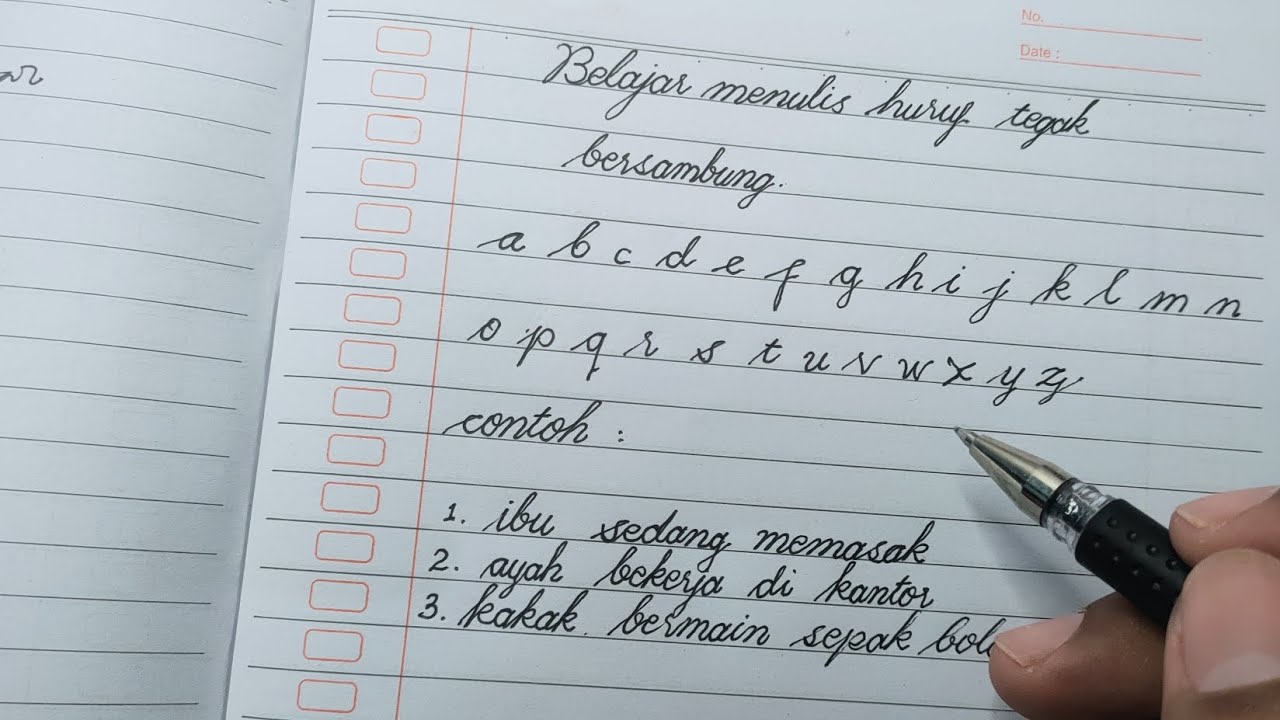 ar
No.
Date :
Belajar menulis huruf tegak
bersambung.
a b c d e f g h i j k l m n
o p q r s t u v w x y z
contoh :
1. ibu sedang memasak
2. ayah bekerja di kantor
3. kakak bermain sepak